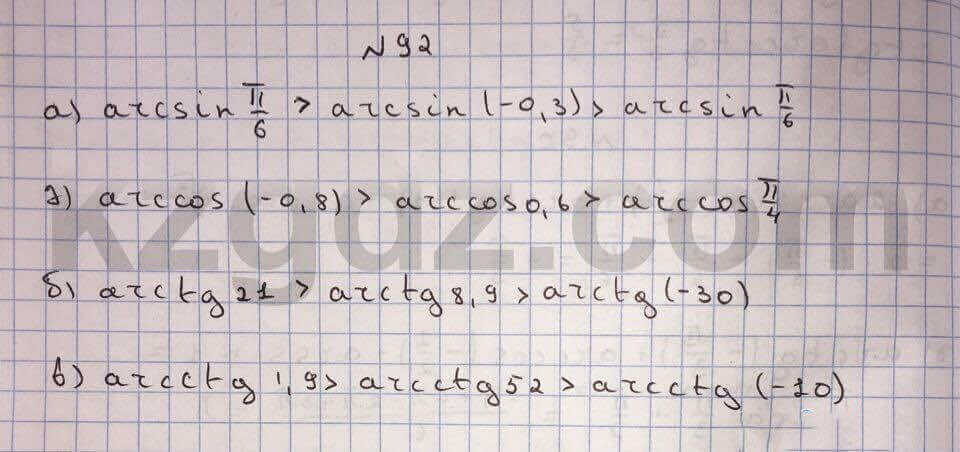 N 92
а) arcsin π/6 > arcsin (-0,3) > arcsin π/6
г) arccos (-0,8) > arccos 0,6 > arccos π/4
kzgdz.com
б) arctg 21 > arctg 8,9 > arctg (-30)
в) arcctg 1,9 > arcctg 52 > arcctg (-10)